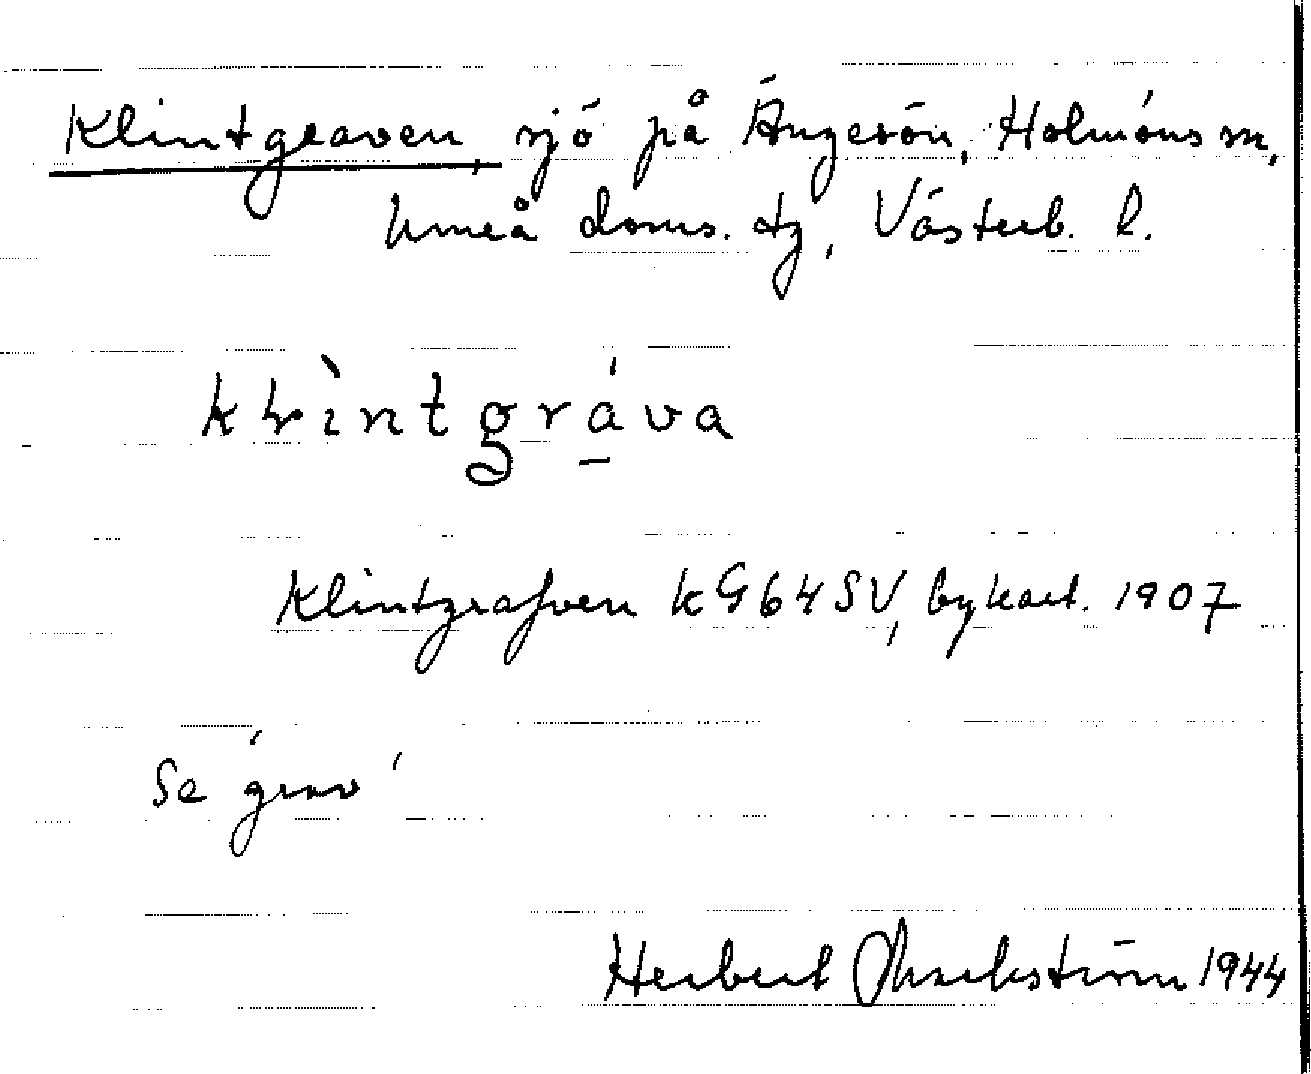 Klintgraven, sjö på Ängesön, Holmöns sn,
Umeå doms. tg, Västerb. l.
klìntgráva
Klintgrafven kG64SV, bykart. 1907
Se 'grav'
Herbert 1944